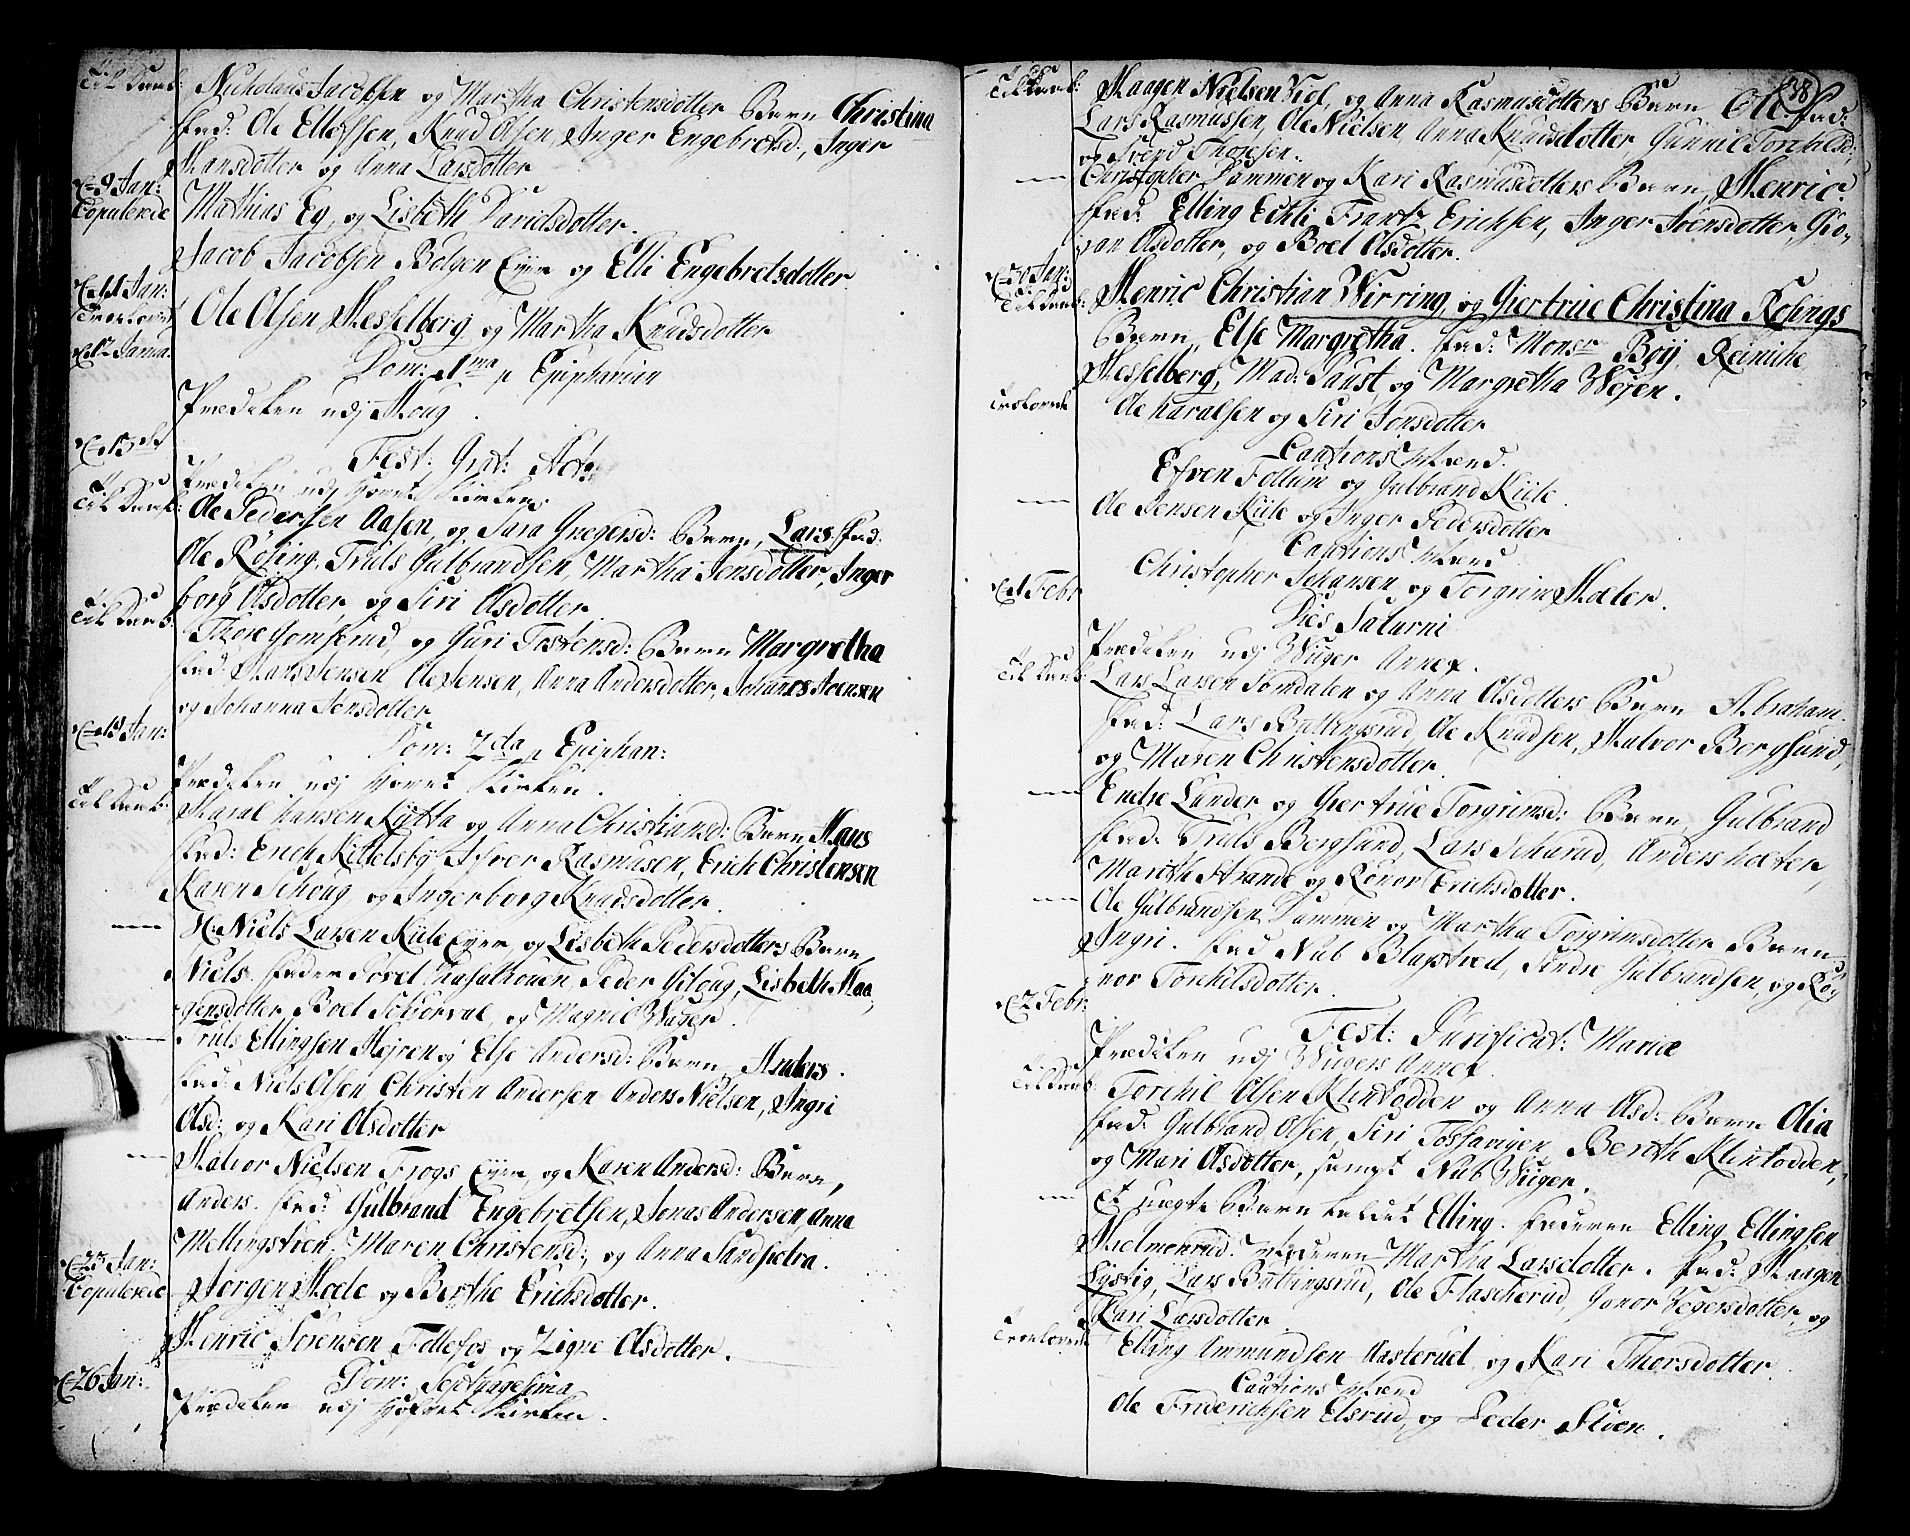 Til Daab: Nicholaus Jacobsen og Martha Christensdotter Barn Christina
fad: Ole Ellefsen, Knud Olsen, Inger Engebretsd:, Inger
Hansdotter og Anna Larsdotter
d. 9 Jan:
Copulerede Mathias Eg, og Lisbeth Davidsdotter.
Jacob Jacobsen Bolgen Eyer og Elli Engebretsdotter
d. 11 Jan:
Trolovet Ole Olsen Hesselberg og Martha Knudsdotter
d. 12 Janua. Dom: 1ma p Epiphanian
Prædiken udj Houg.
d. 15de Fest: Grat: Act:
Prædiken udj Hovet Kirken.
Til Daab: Ole Pedersen Aasen, og Sara Gregersd: Barn, Lars. fad:
Ole Røsing, Truls Gulbrandsen, Martha Jensdotter, Inger
borg Olsdotter og Siri Olsdotter.
Til Daab: Thore Gomserud, og Guri Tostensd: Barn Margretha
fad: Hans Jensen Ole Jensen, Anna Andersdotter, Johannes Joensen
og Johanna Jensdotter
d. 19 Jan: Dom: 2da p Epiphan:
Prædiken udj Hovet Kirken.
Til Daab: Haral Hansen Rytta og Anna Christiansd: Barn Hans
fad: Erich Kittelsby, Ifver Rasmusen, Erich Christensen
Karen Schoug, og Ingerborg Knudsdotter.
— H: Niels Larsen Kiile Eyer, og Lisbeth Pedersdotters Barn,
Niels. fadere Povel Piil, Peder Giloug, Lisbeth Haa,
gensdotter, Boel Schiorvol, og Magnil Wiiger.
— Truls Ellingsen Hejren og Else Andersd: Barn, Anders.
fad: Niels Olsen, Christen Andersen Anders Nielsen, Ingri
Olsd: og Kari Olsdotter
— Halvor Nielsen Frogs Eyer, og Karen Andersd: Barn,
Anders. fad: Gulbrand Engebretsen, Jonas Andersen, Anna
Mellingstien, Maren Christensd:, og Anna Sandsætra.
d. 23 Jan:
Copulerede Jørgen Moele og Berthe Erichsdotter.
Henric Sørensen Follefos og Zigne Olsdotter.
d. 26 Jan: Dom: Septuagesima
Prædiken udj Hofvet Kirken.
38
Til Daab: Haagen Nielsen Viol og Anna Rasmusdotters Barn Ole. fad:
Lars Rasmussen, Ole Nielsen, Anna Knudsdotter, Gunnil Torchilsd:
og Svend Thoresen.
— Christopher Dammen og Kari Rasmusdotters Barn, Henric.
fad: Elling Eckli, Frantz Erichsen, Inger Joensdotter, Gio,
ran Olsdotter, og Boel Olsdotter.
d. 30 Jan:
Til Daab: Henric Christian Wirring, og Giertrue Christina Kobngs
Barn, Else Margretha. fad: Monsr Boij, Reiniche
Hesselberg, Mad: Faust, og Margretha Wejen.
Trolovede Ole Haralsen og Siri Jonsdotter
Cautions Mænd.
Efven Follum og Gulbrand Kiile.
— Ole Jensen Kiile og Inger Pedersdotter
Cautions Mænd
Christopher Johansen, og Torgrim Hæter.
d. 1 Febr Dies Saturni
Prædiken udj Wiiger Annex.
Til Daab: Lars Larsen Somdalen og Anna Olsdotters Barn Abraham.
fad: Lars Battingsrud, Ole Knudsen, Halvor Borgsund,
og Maren Christensdotter.
— Endre Lunder og Giertrue Torgrimsd: Barn, Gulbrand
fad: Truls Bergsund, Lars Scharud, Anders Hæter,
Marith Strande og Rønor Erichsdotter.
— Ole Gulbrandsen Dammen og Martha Torgrimsdotter Barn
Ingri. fad Nub Blagstved, Endre Gulbrandsen, og Rø,
nor Torchilsdotter.
d. 2 Febr: Fest: Purificat: Mariæ
Prædiken udj Wiigers Annex.
Til Daab: Torchil Olsen Klintodden og Anna Olsd: Barn Olia
fad: Gulbrand Olsen, Siri Tossavigen, Berith Klintodden,
og Mari Olsdotter, sampt Nub Wiiger.
— Et uægte Barn kaldet Elling. Faderen Elling Ellingsen
Hielmenrud. Moderen Martha Larsdotter. fad: Haagen
Lystig, Lars Battingsrud, Ole Flascherud, Gonor Vegersdotter, og
Kari Larsdotter
Trolovede Elling Ammundsen Aasterud, og Kari Thorsdotter.
Cautions Mænd
Ole Friderichsen Elsrud, og Peder Støen.